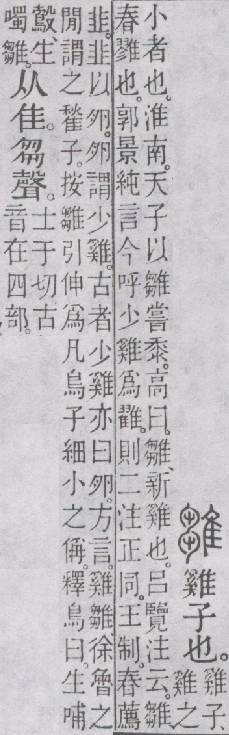 雛 雞子也。
雞子、
雞之
小者也。淮南。天子以雛嘗黍。高曰。雛、新雞也。呂覽注云。雛、
春雡也。郭景純言今呼少雞爲雡。則二注正同。王制。春薦
韭。韭以夘。夘謂少雞。古者少雞亦曰夘。方言。雞雛徐魯之
閒謂之䨂子。按雛引伸爲凡鳥子細小之偁。釋鳥曰。生哺
鷇、生
噣雛。
从隹。芻聲。
士于切。古
音在四部。